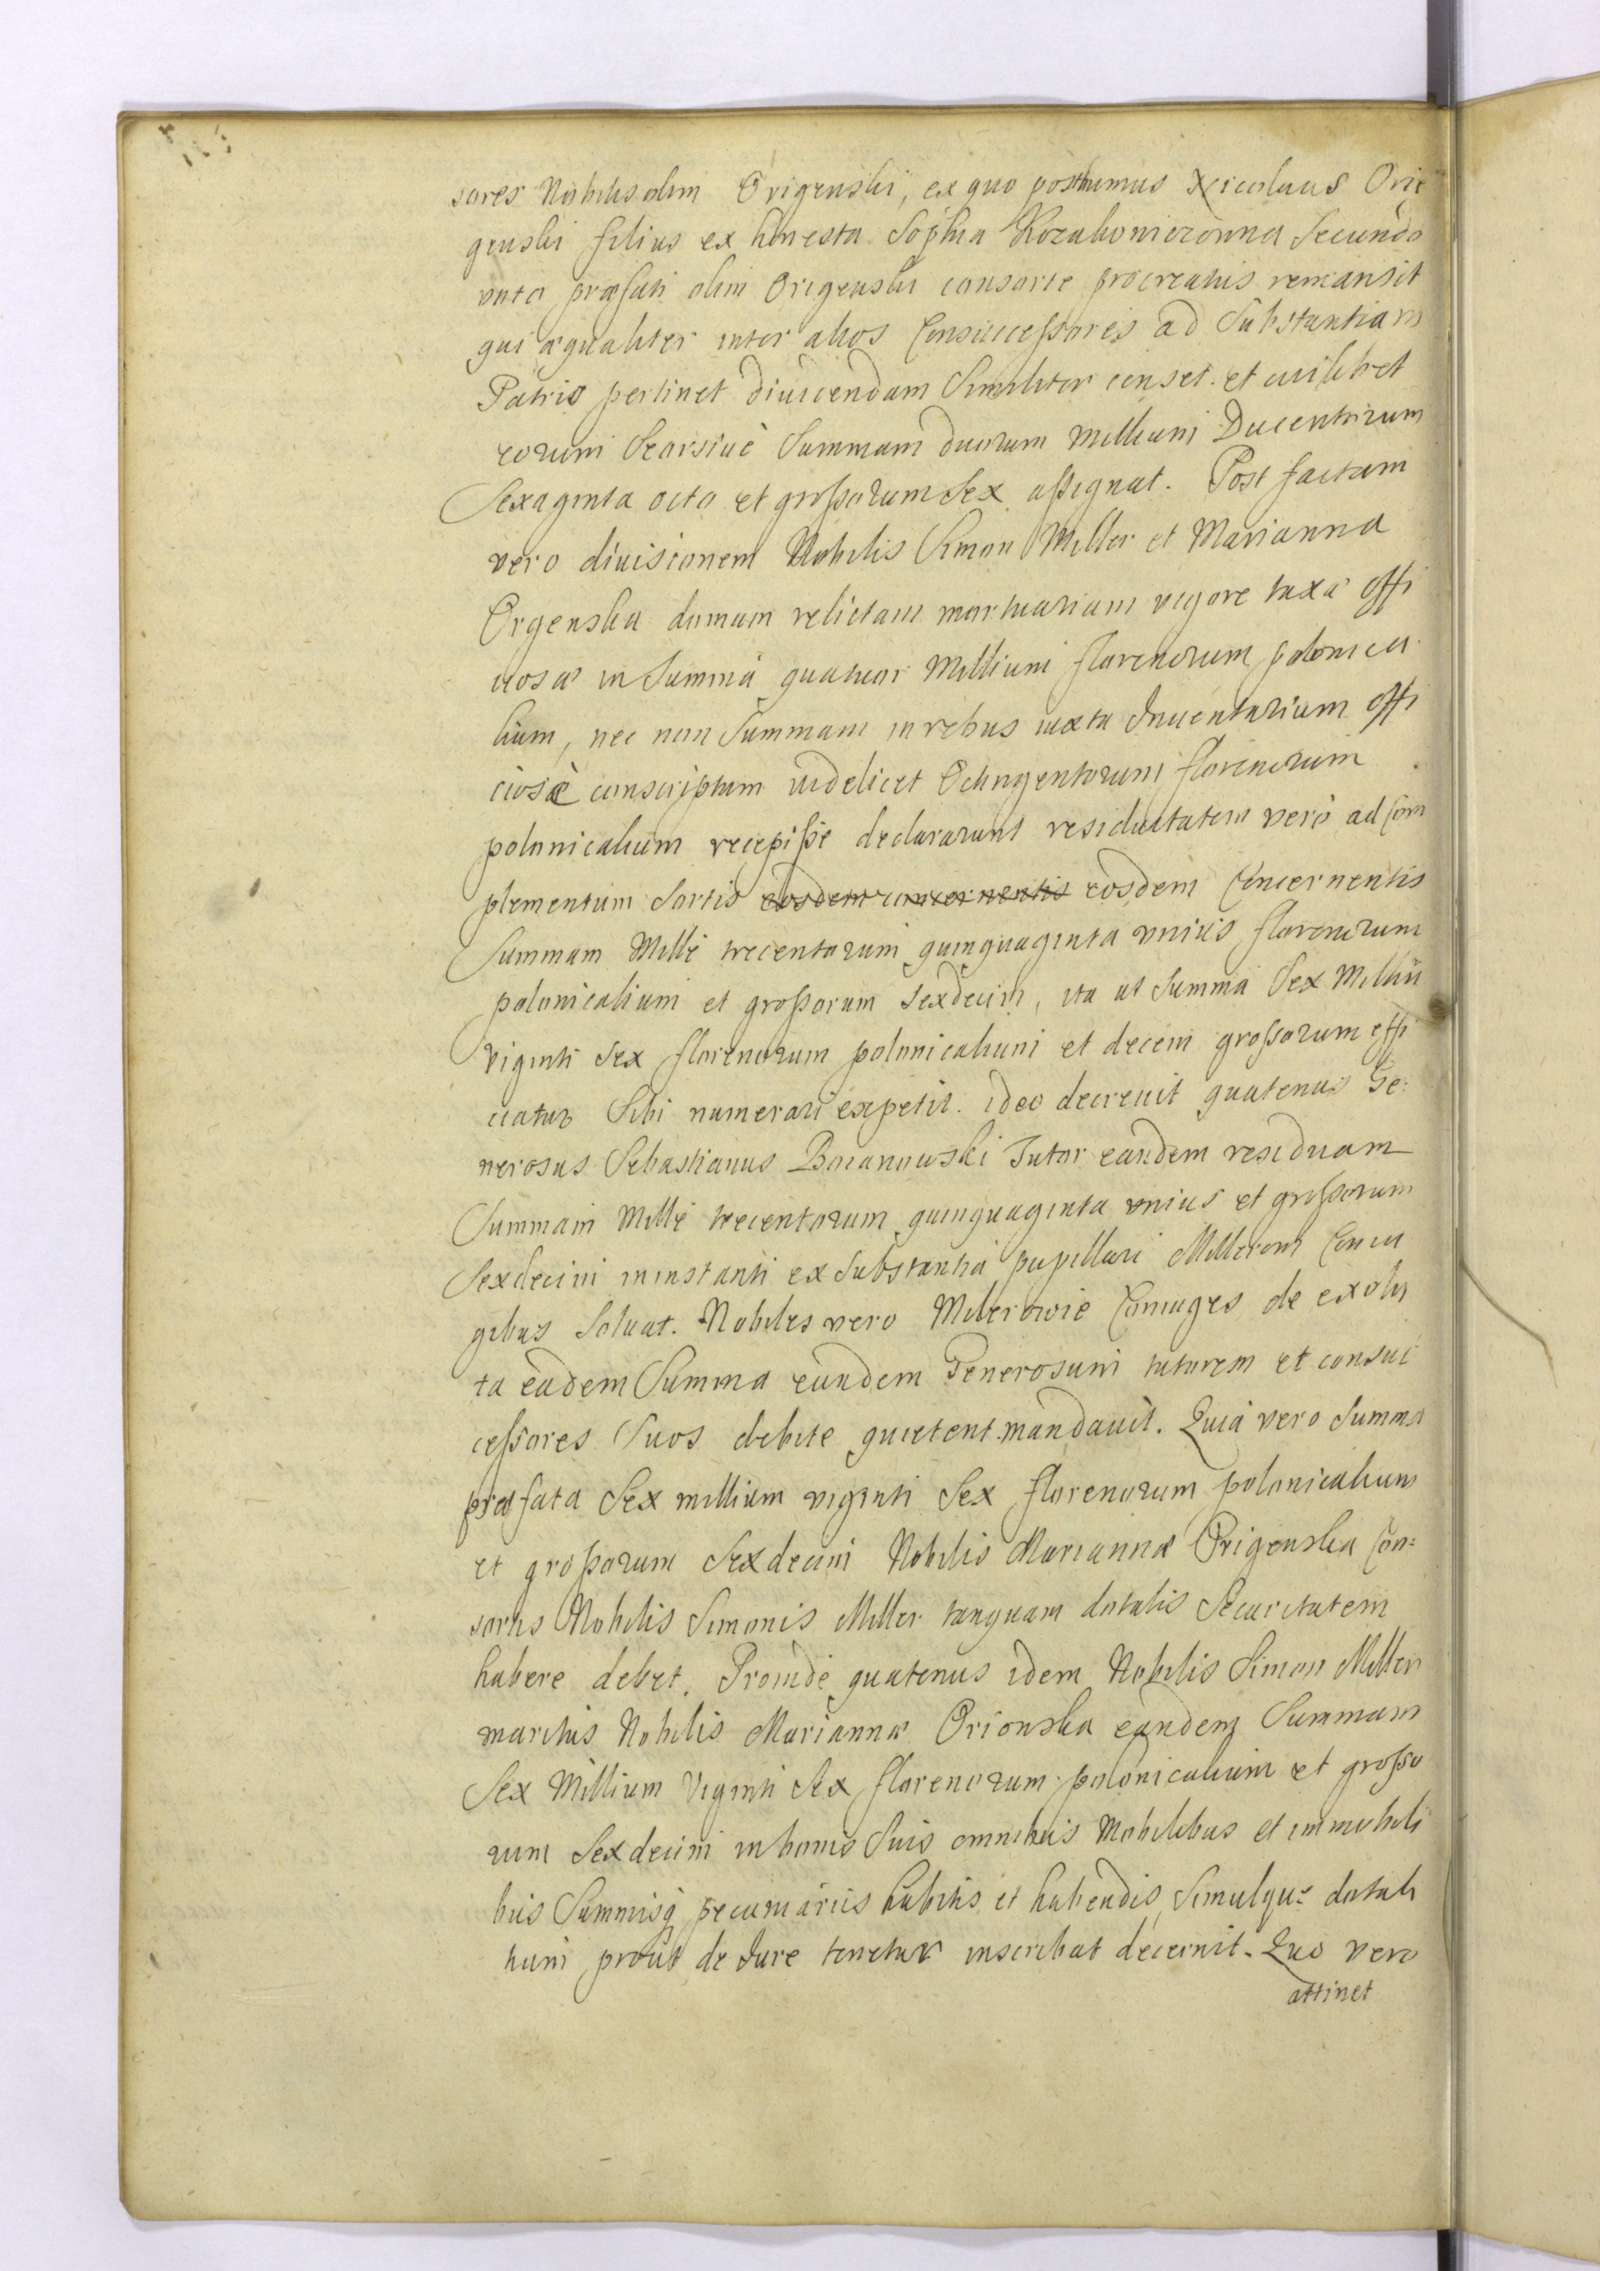 sores Nobilis olim Origenski, ex quo posthumus Nicolaus Orie
genski filius ex honesta Sophia Kozakowiczowna Secundo
voto præfati olim Origenski consorte procreatus remansit
qui æqualiter inter alios Consuccessores ad Substantiam
Patris pertinet diuidendam Similiter censet et cuilibet
eorum Seorsiue Summam duorum millium Ducentorum
Sexaginta octo et grossorum Sex assignat. Post factam
vero diuisionem Nobilis Simon Miller et Marianna
Orgenska domum relictam mortuariam vigore taxæ offi
ciosæ in Summa quatuor Millium florenorum polonica
lium, nec non Summam in rebus iuxta Inuentarium offi
ciosæ conscriptum videlicet Octingentorum florenorum
polonicalium recepisse declararunt residuitatem vero ad Com
plementum Sortis eosdem concernentis eosdem Concernentis
Summam Mille trecentorum quinquaginta vnius florenorum
polonicalium et grossorum Sexdecim, ita ut Summa Sex Milliū
viginti Sex florenorum polonicalium et decem grossorum effi
ciatur Sibi numerari expetit. ideo decreuit quatenus Ge:
nerosus Sebastianus Boianowski Tutor eandem residuam
Summam Mille trecentorum quinquaginta vnius et grossorum
Sexdecim in instanti ex Substantia pupillari Millerom Coniu
gibus Soluat. Nobiles vero Milerowie Coniuges de exolu
ta eadem Summa eundem Generosum tutorem et consuc
cessores Suos debite quietent mandauit. Quia vero Summa
præfata Sex millium viginti Sex florenorum polonicalium
et grossorum Sexdecim Nobilis Mariannæ Origenska Con=
sortis Nobilis Simonis Miller tanquam dotalis Securitatem
habere debet. Proinde quatenus idem Nobilis Simon Miller
maritus Nobilis Mariannæ Orionska eandem Summam
Sex Millium Viginti Sex florenorum polonicalium et grosso
rum Sexdecim in bonis Suis omnibus Mobilibus et immobili
bus Summisq pecuniariis habitis et habendis, Simulque dotali
tium prout de Jure tenetur inscribat decernit. Quo vero
attinet